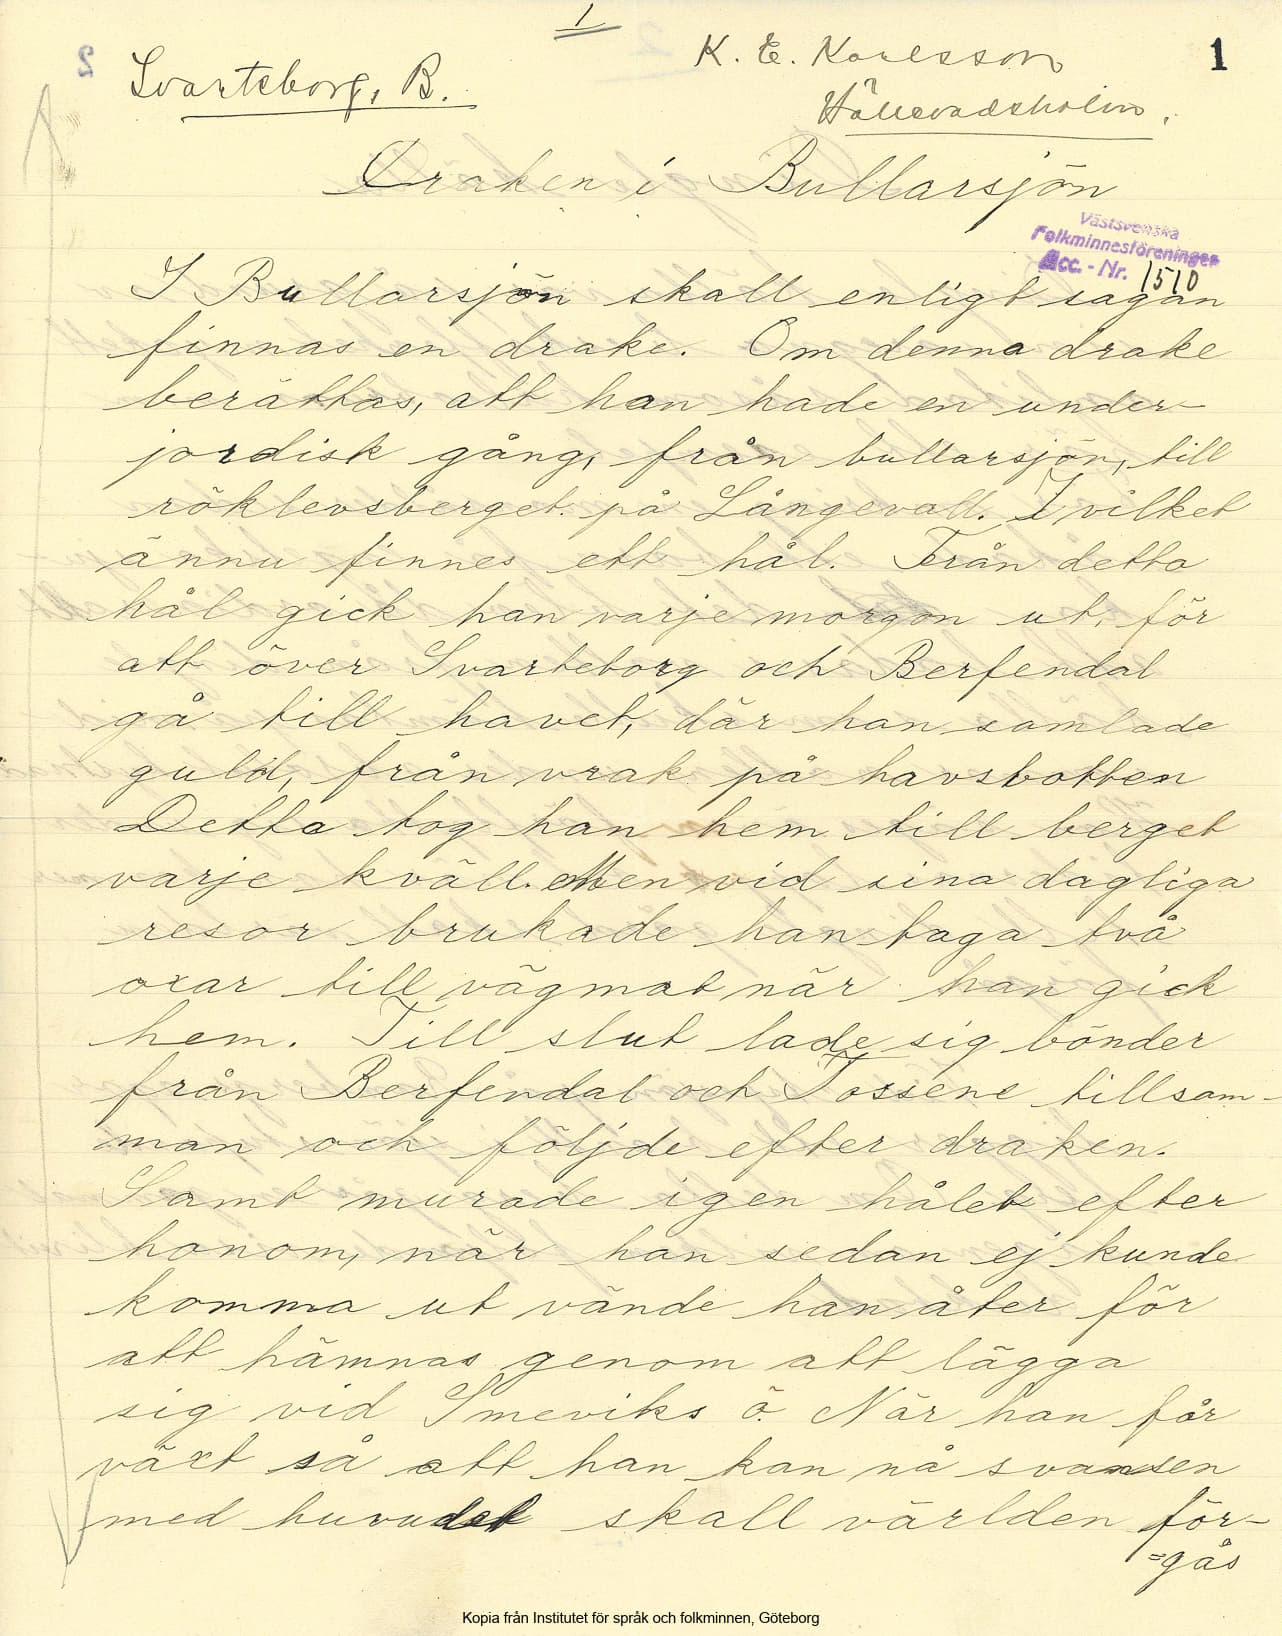 1
K. E. Karlsson
1
Svarteborg, B.
Hällevadsholm.
Draken i Bullarsjön
Västsvenska
Folkminnesföreningen
Acc. - Nr. 1510
I Bullarsjön skall enligt sagan
finnas en drake. Om denna drake
berättas, att han hade en under-
jordisk gång, från bullarsjön, till
röklevsberget. på Långevall. I vilket
ännu finnes ett hål. Från detta
hål gick han varje morgon ut, för
att över Svarteborg och Berfendal
gå till havet, där han samlade
guld, från vrak på havsbotten
Detta tog han hem till berget
varje kväll. Men vid sina dagliga
resor brukade han taga två
oxar till vägmat när han gick
hem. Till slut lade sig bönder
från Berfendal och Tossene tillsam-
man och följde efter draken.
Samt murade igen hålet efter
honom, när han sedan ej kunde
komma ut vände han åter för
att hämnas genom att lägga
sig vid Smeviks ö. När han får
växt så att han kan nå svansen
med huvudet skall världen för-
=gås
Kopia från Institutet för språk och folkminnen, Göteborg